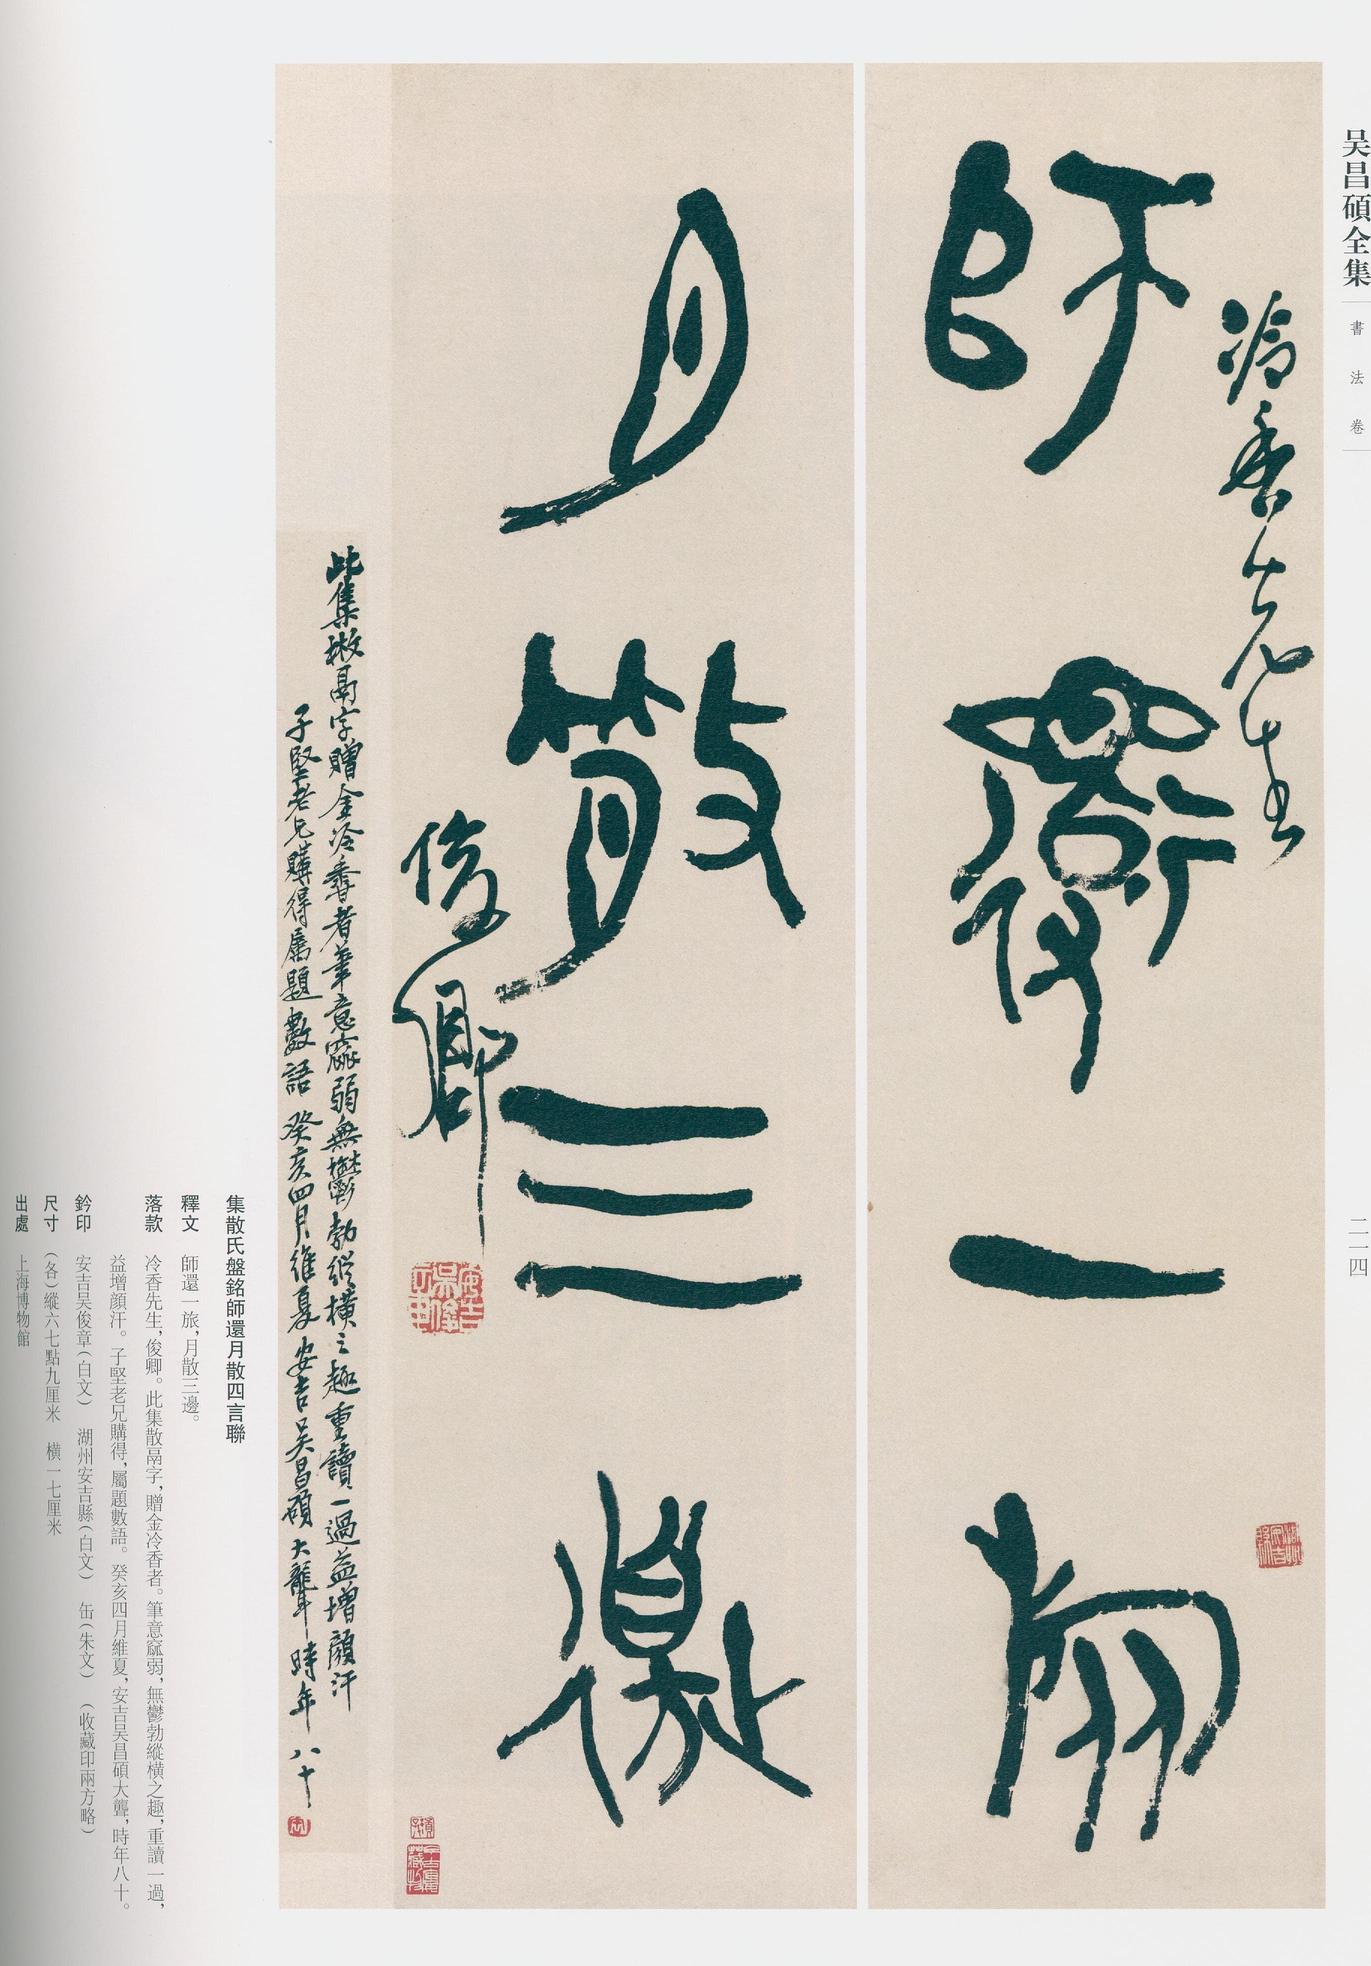 吴昌碩全集
書法卷
二一四
冷香先生
師還一旅
月散三邊
俊卿
此集散鬲字贈金冷香者筆意窳弱無鬱勃縱橫之趣重讀一過益增顏汗
子堅老兄購得屬題數語癸亥四月維夏安吉吴昌碩大聾時年八十
集散氏盤銘師還月散四言聯
釋文 師還一旅，月散三邊。
落款 冷香先生，俊卿。此集散鬲字，贈金冷香者。筆意窳弱，無鬱勃縱橫之趣，重讀一過，
益增顏汗。子堅老兄購得，屬題數語。癸亥四月維夏，安吉吴昌碩大聾，時年八十。
鈐印 安吉吴俊章（白文） 湖州安吉縣（白文） 缶（朱文） （收藏印兩方略）
尺寸 （各）縱六七點九厘米 橫一七厘米
出處 上海博物館